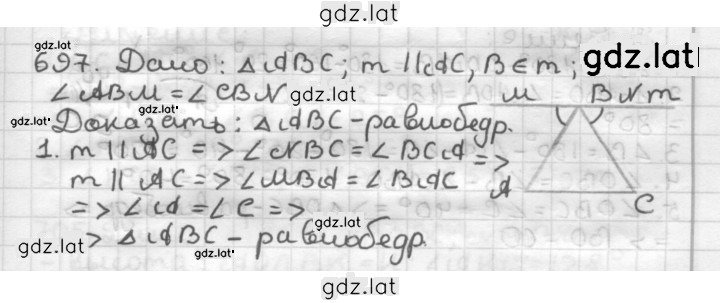 gdz.lat
gdz.lat
697. Дано: △ABC; m || AC, B ∈ m; gdz.lat
∠ABM = ∠CBN gdz.lat M B N m
gdz.lat Доказать: △ABC - равнобедр.
1. m || AC => ∠NBC = ∠BCA =>
m || AC => ∠MBA = ∠BAC A
=> ∠A = ∠C => gdz.lat C
gdz.lat > △ABC - равнобедр.
gdz.lat
gdz.lat